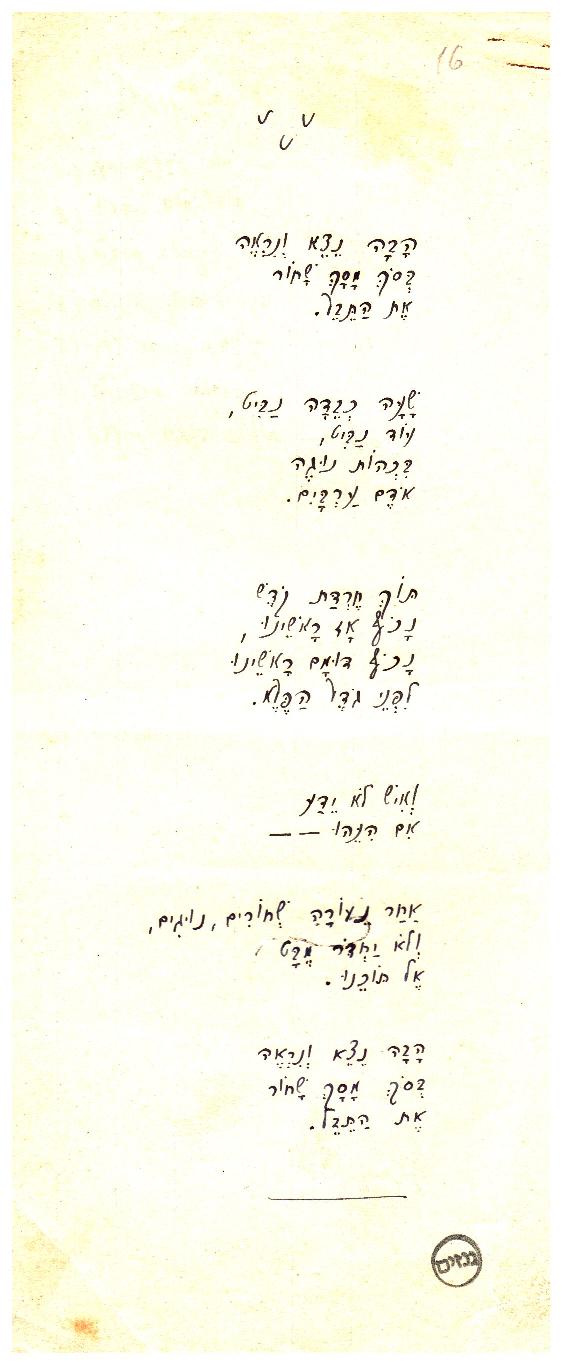 16
הָבָה נֵצֵא וְנִרְאֶה
בְּסֹךְ מָסָךְ שָׁחוֹר
אֶת הַתֵּבֵל.
שָׁעָה כְבֵדָה נַבִּיט,
עוֹד נַבִּיט,
בִּכְהוֹת נוּגֶה
אֹדֶם עַרְבָּיִם.
תּוֹךְ חֶרְדַת קֹדֶשׁ
נָכֹף אָז רָאשֵׁינוּ,
נָכֹף דוּמָם רָאשֵׁינוּ
לִפְנֵי גֹדֶל הַפֶּלֶא.
וְאִישׁ לֹא יֵדַע
אִם הִנֵּהוּ – –
אַחַר שְׁחוֹרִים, נוּגִים,
וְלֹא יַחְדֹר מַבָּט
אֶל תּוֹכֵנוּ.
הָבָה נֵצֵא וְנִרְאֶה
בְּסֹךְ מָסָךְ שָׁחוֹר
אֶת הַתֵּבֵל.
גנזים